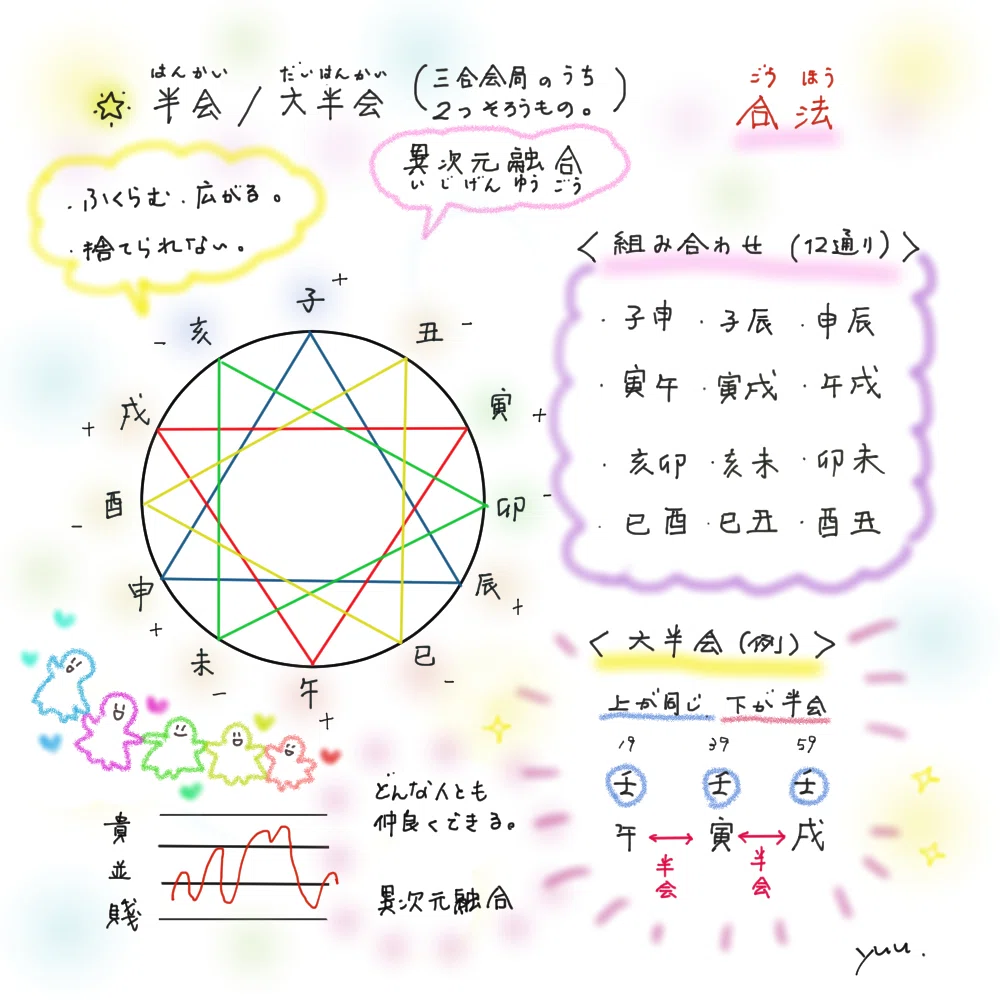 はんかい だいはんかい
☆ 半会 / 大半会 (三合会局のうち
2つそろうもの。)
ごう ほう
合法
異次元融合
い じげん ゆう ごう
・ふくらむ・広がる。
・捨てられない。
〈 組み合わせ (12通り) 〉
・子申 ・子辰 ・申辰
・寅午 ・寅戌 ・午戌
・亥卯 ・亥未 ・卯未
・巳酉 ・巳丑 ・酉丑
子 +
丑 -
寅 +
卯 -
辰 +
巳 -
午 +
未 -
申 +
酉 -
戌 +
亥 -
〈 大半会 (例) 〉
上が同じ. 下が半会
19 39 59
壬 壬 壬
午 ↔ 寅 ↔ 戌
半会 半会
貴
並
賤
どんな人とも
仲良くできる。
異次元融合
yuu.